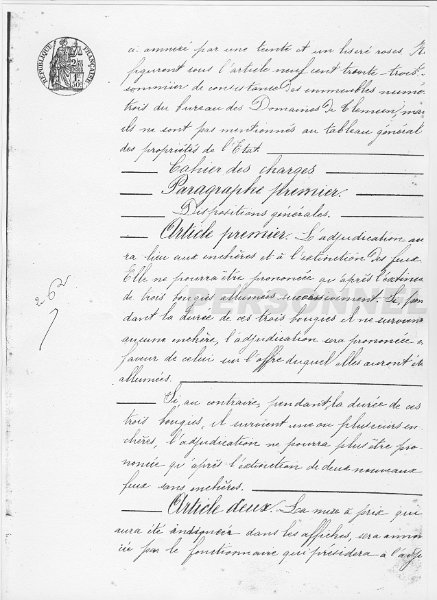 RÉPUBLIQUE FRANÇAISE
a annexé par une teinte et un liseré roses. Ils
figurent sous l'article neuf cent trente trois
sommier de consistance des immeubles numéro
trois du bureau des Domaines de Tlemcen, mais
ils ne sont pas mentionnés au tableau général
des propriétés de l'Etat
Cahier des charges
Paragraphe premier.
Dispositions générales.
Article premier. L'adjudication au
ra lieu aux enchères et à l'extinction des feux.
Elle ne pourra être prononcée qu'après l'extinction
de trois bougies allumées successivement. Si, pen
dant la durée de ces trois bougies il ne survient
aucune enchère, l'adjudication sera prononcée en
faveur de celui sur l'offre duquel elles auront été
allumées.
Si, au contraire, pendant la durée de ces
trois bougies, il survient une ou plusieurs en-
chères, l'adjudication ne pourra plus être pro-
noncée qu'après l'extinction de deux nouveaux
feux sans enchères.
Article deux. La mise à prix qui
aura été annoncée dans les affiches, sera annon
cée par le fonctionnaire qui présidera à l'adju